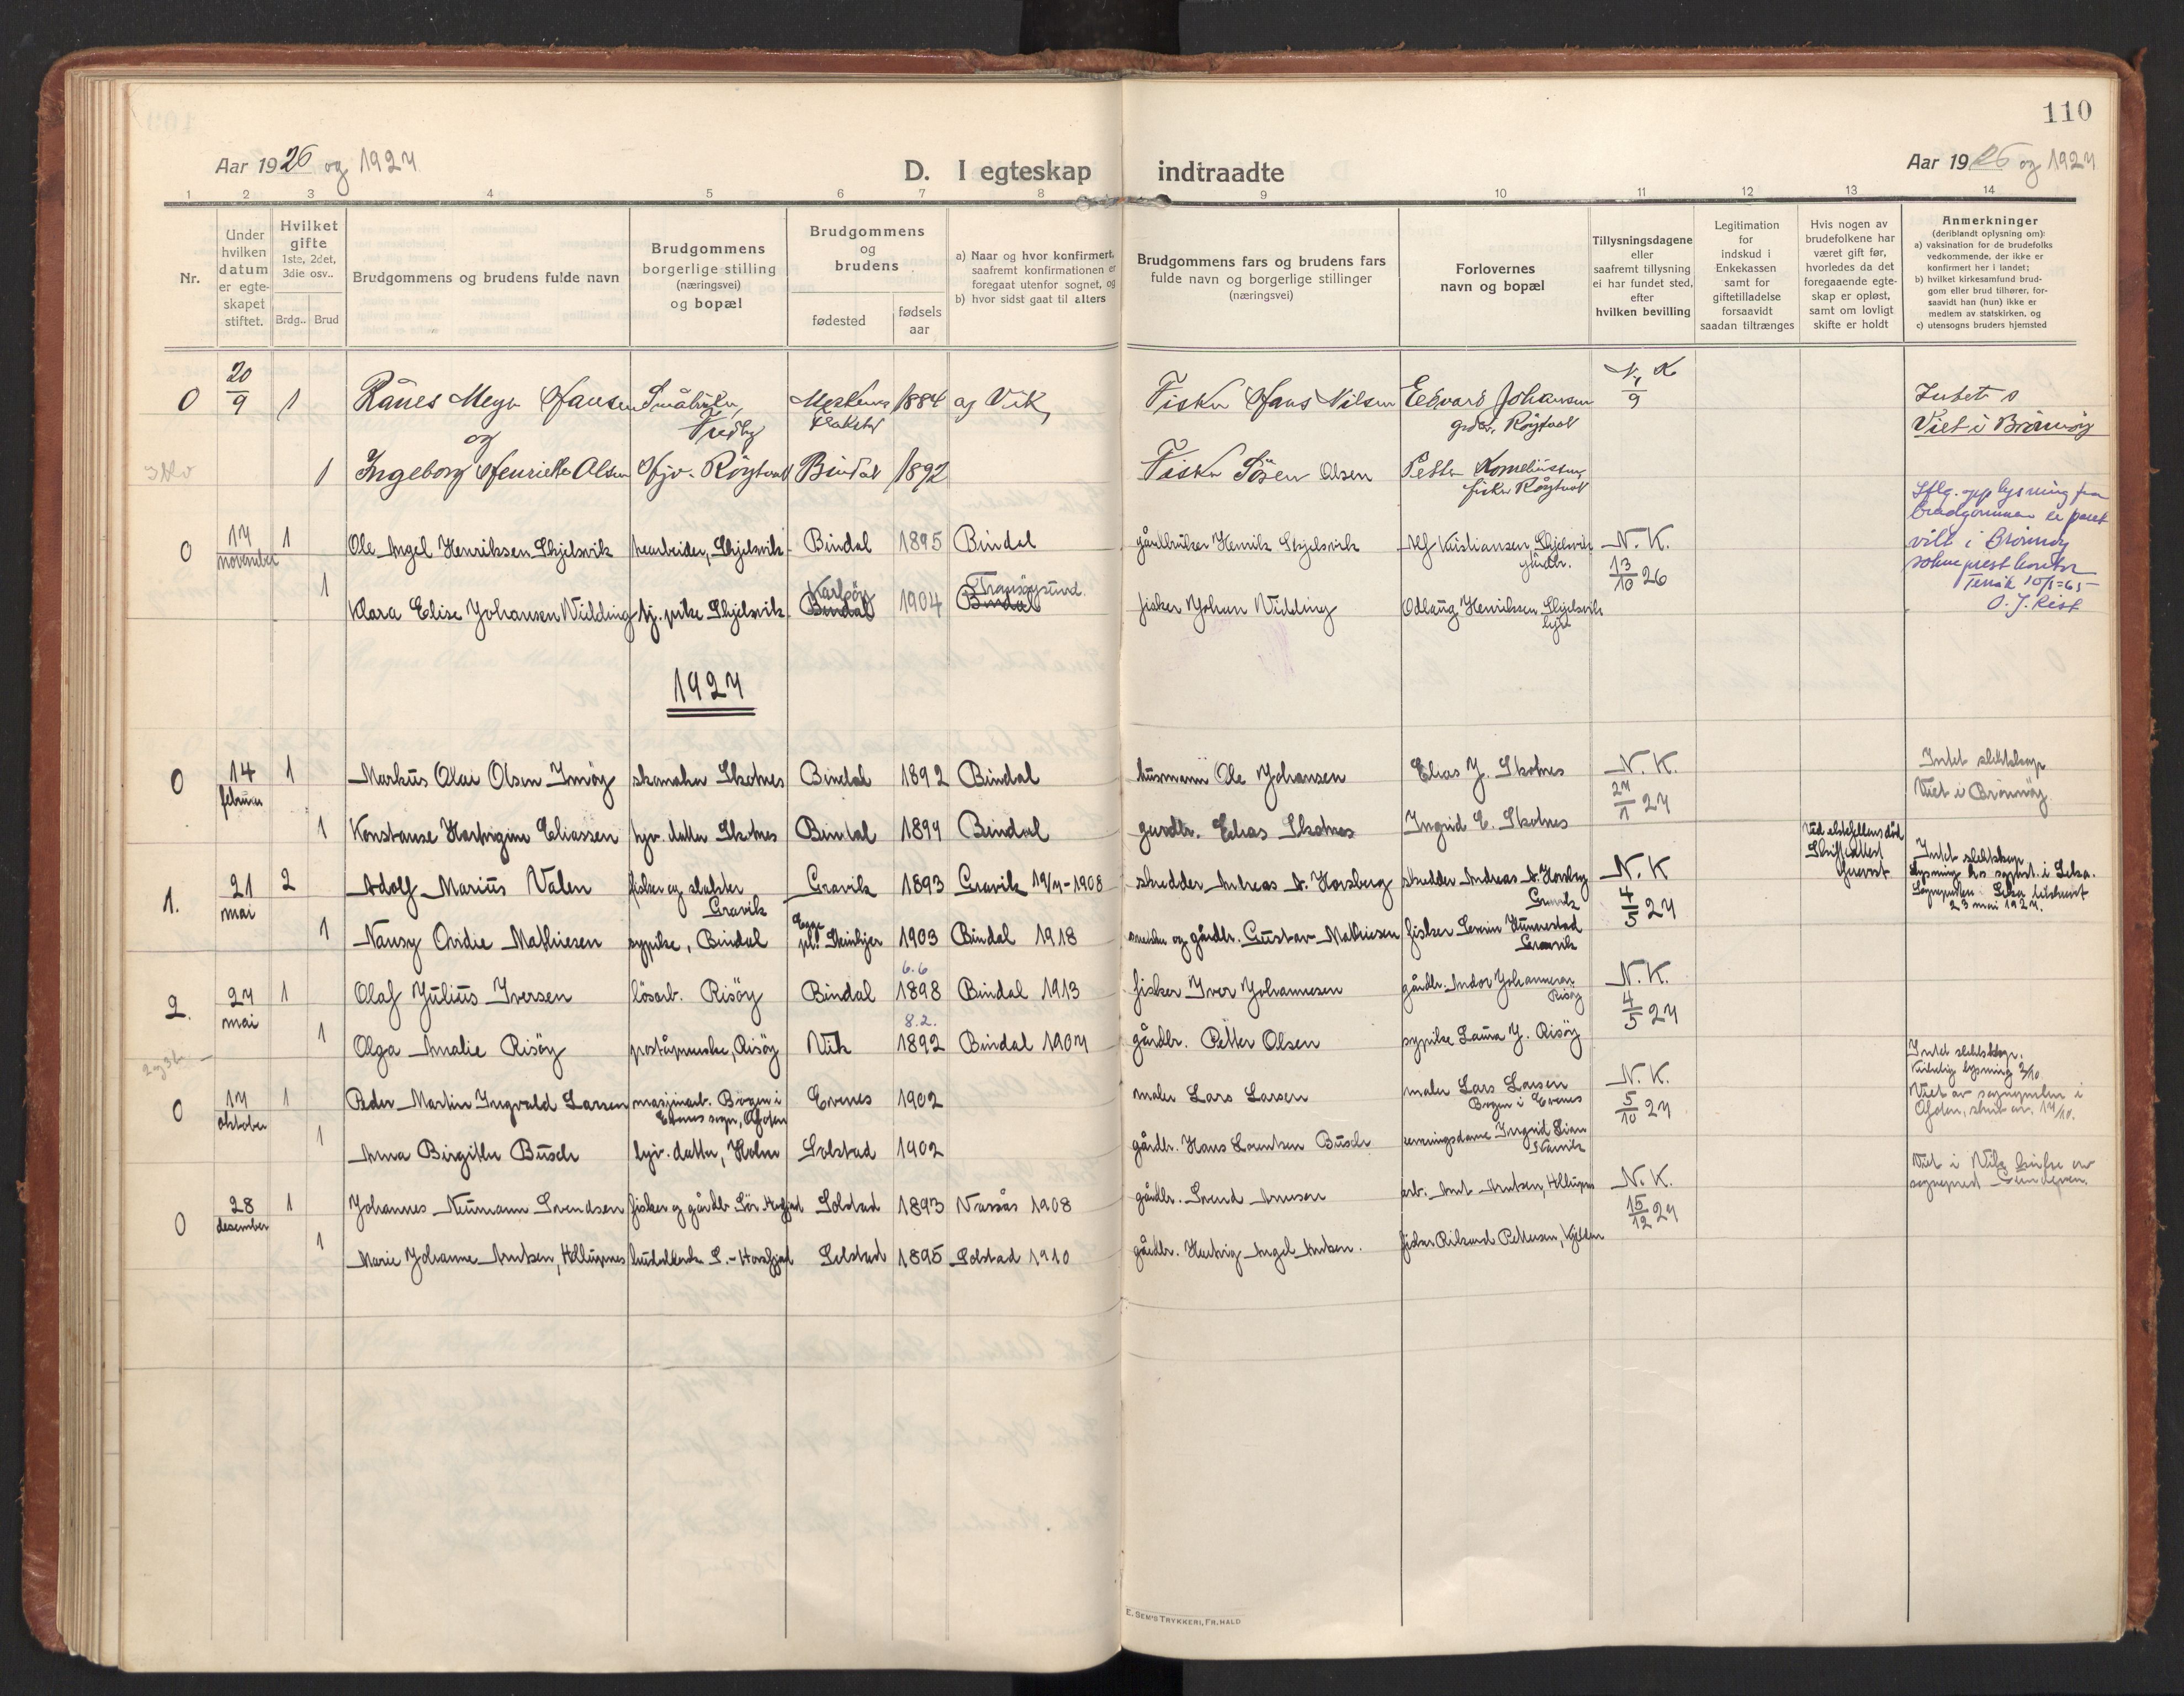 110
Aar 1926 og 1927
D. I egteskap indtraadte
Aar 1926 og 1927
1 2 3 4 5 6 7 8 9 10 11 12 13 14
Nr.
Under hvilken datum er egteskapet stiftet.
Hvilket gifte 1ste, 2det, 3die osv..
Brdg.. Brud
Brudgommens og brudens fulde navn
Brudgommens borgerlige stilling (næringsvei) og bopæl
Brudgommens og brudens
fødested
fødsels aar
a) Naar og hvor konfirmert, saafremt konfirmationen er foregaat utenfor sognet, og
b) hvor sidst gaat til alters
Brudgommens fars og brudens fars fulde navn og borgerlige stillinger (næringsvei)
Forlovernes navn og bopæl
Tillysningsdagene eller saafremt tillysning ei har fundet sted, efter hvilken bevilling
Legitimation for indskud i Enkekassen samt for giftetilladelse forsaavidt saadan tiltrænges
Hvis nogen av brudefolkene har været gift før, hvorledes da det foregaaende egteskap er opløst, samt om lovligt skifte er holdt
Anmerkninger
(deriblandt oplysning om):
a) vaksination for de brudefolks vedkommende, der ikke er konfirmert her i landet;
b) hvilket kirkesamfund brudgom eller brud tilhører, forsaavidt han (hun) ikke er medlem av statskirken, og
c) utensogns bruders hjemsted
0 20/9 1 Rånes Meyer Hansen 1884 og Vik, Fisker Hans Nilsen Edvard Johansen N. K. 1/9
og
Viet i Brönnöy
1 Ingeborg Henriette Olsen Bindal 1892 Fisker Sören Olsen Petter Korneliussen, fisker
Iflg. opplysning fra
brudgommen er paret
viet i Brönnöy
sokneprestkontor
Terråk 10/1-65
0 17 november 1 Ole Angel Henriksen Skjelsvik Skjelsvik Bindal 1895 Bindal gårdbruker Henrik Skjelsvik Alf Kristiansen, Skjelsvik gårdbr. N. K. 13/10 26
1 Klara Elise Johansen Vidding tj. pike Skjelsvik Karlsöy Bindal 1904 Bindal fisker Johan Vidding Odlaug Henriksen Skjelsvik
1927
0 14 februar 1 Markus Olai Olsen Imöy skomaker Skotnes Bindal 1892 Bindal husmann Ole Johansen Elias J. Skotnes N. K. 27/1 27
Intet slektskap
Viet i Brönnöy
1 Konstanse Hartvigine Eliassen hjv. datter Skotnes Bindal 1899 Bindal gårdbr. Elias Skotnes Ingrid E. Skotnes
1. 21 mai 2 Adolf Marius Valen fisker og slakter Gravik Gravik 1893 Gravik 19/7-1908 skredder Andreas A. Horsberg skredder Andreas A. Horsberg Gravik N. K 4/5 27
Ved ektefellens död
Skifteattest
Intet slektskap
Lysning hos sogneprest. i Leka.
23 mai 1927.
1 Nansy Ovidie Mathiesen sypike, Bindal Egge pr. Steinkjer 1903 Bindal 1918 snekker og gårdbr. Gustav Mathiesen fisker Severin Hunnestad Gravik
6.6
2. 27 mai 1 Olaf Julius Iversen lösarb. Risöy Bindal 1898 Bindal 1913 fisker Iver Johannesen gårdbr. Andor Johannesen Risöy N. K. 4/5 27
8.2.
1 Olga Amalie Risöy poståpnerske, Risöy Vik 1892 Bindal 1907 gårdbr. Petter Olsen sypike Laura J. Risöy
0 17 oktober 1 Peder Martin Ingvald Larsen maskinarb. Bogen i Evenes sogn, Ofoten Evenes 1902 maler Lars Larsen maler Lars Larsen Bogen i Evenes N. K. 5/10 27
Intet slektskap.
Kirkelig lysning 2/10.
Viet av sogneprester i
Ofoten, 17/10.
1 Anna Birgitte Busch hjv. datter, Holm Solstad 1902 gårdbr. Hans Lorentsen Busch Ingrid Lian
0 28 desember 1 Johannes Neumann Svendsen fisker og gårdbr. Sör-Horsfjord Solstad 1893 Vassås 1908 gårdbr. Svend Arnesen arb. Arnt Arntsen, Hollupnes N. K. 15/12 27
Viet i Vik kirke av
sogneprest
1 Marie Johanne Arntsen, Hollupnes S.-Horsfjord Solstad 1895 Solstad 1910 gårdbr. Hartvig Angel Arntsen. fisker Rikard Pettersen, Kjelden
E. SEM'S TRYKKERI, FR. HALD